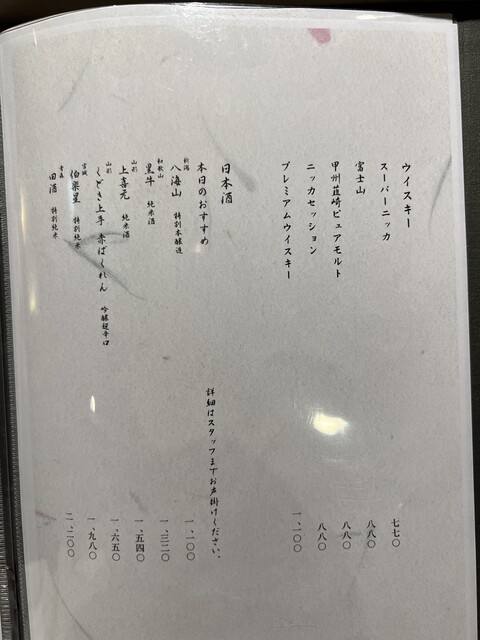 ウイスキー
スーパーニッカ 七七〇
富士山 八八〇
甲州韮崎ピュアモルト 八八〇
ニッカセッション 八八〇
プレミアムウイスキー 一、一〇〇
日本酒
本日のおすすめ 詳細はスタッフまでお声掛けください。
新潟 八海山 特別本醸造 一、一〇〇
和歌山 黒牛 純米酒 一、三二〇
山形 上喜元 純米酒 一、五四〇
山形 くどき上手 赤ばくれん 吟醸超辛口 一、六五〇
宮城 伯楽星 特別純米 一、九八〇
青森 田酒 特別純米 二、二〇〇